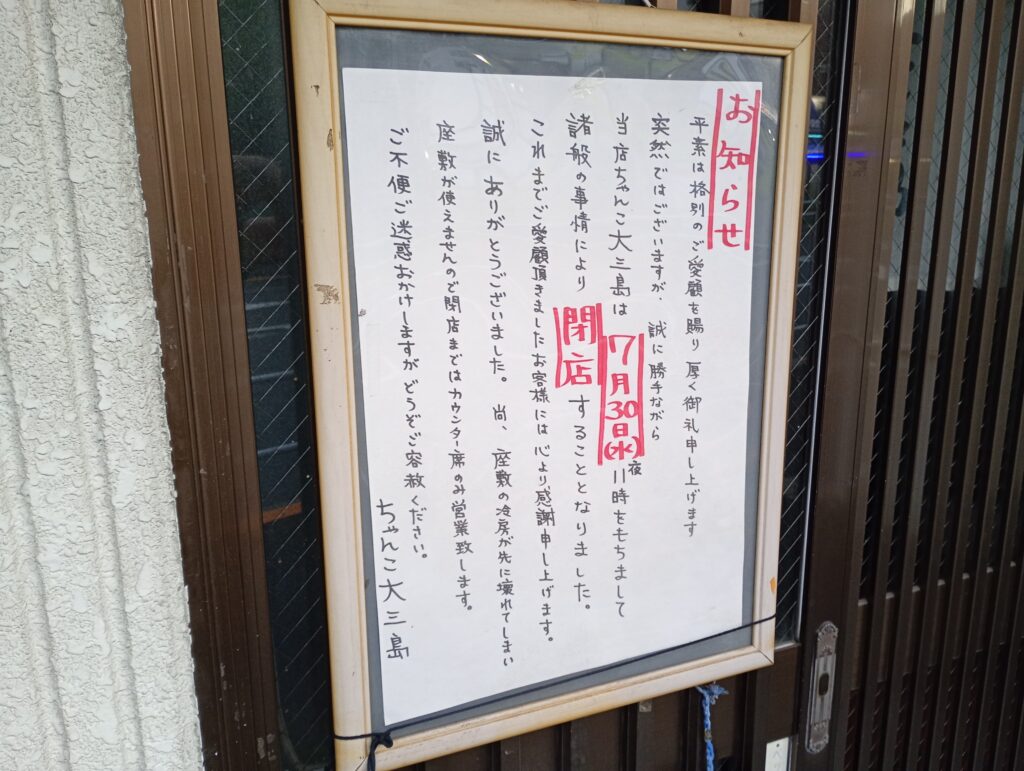 お知らせ
平素は格別のご愛顧を賜り厚く御礼申し上げます
突然ではございますが、誠に勝手ながら
当店ちゃんこ大三島は7月30日(水)夜11時をもちまして
諸般の事情により閉店することとなりました。
これまでご愛顧頂きましたお客様には心より感謝申し上げます。
誠にありがとうございました。尚、座敷の冷房が先に壊れてしまい
座敷が使えませんので閉店まではカウンター席のみ営業致します。
ご不便ご迷惑おかけしますがどうぞご容赦ください。
ちゃんこ大三島